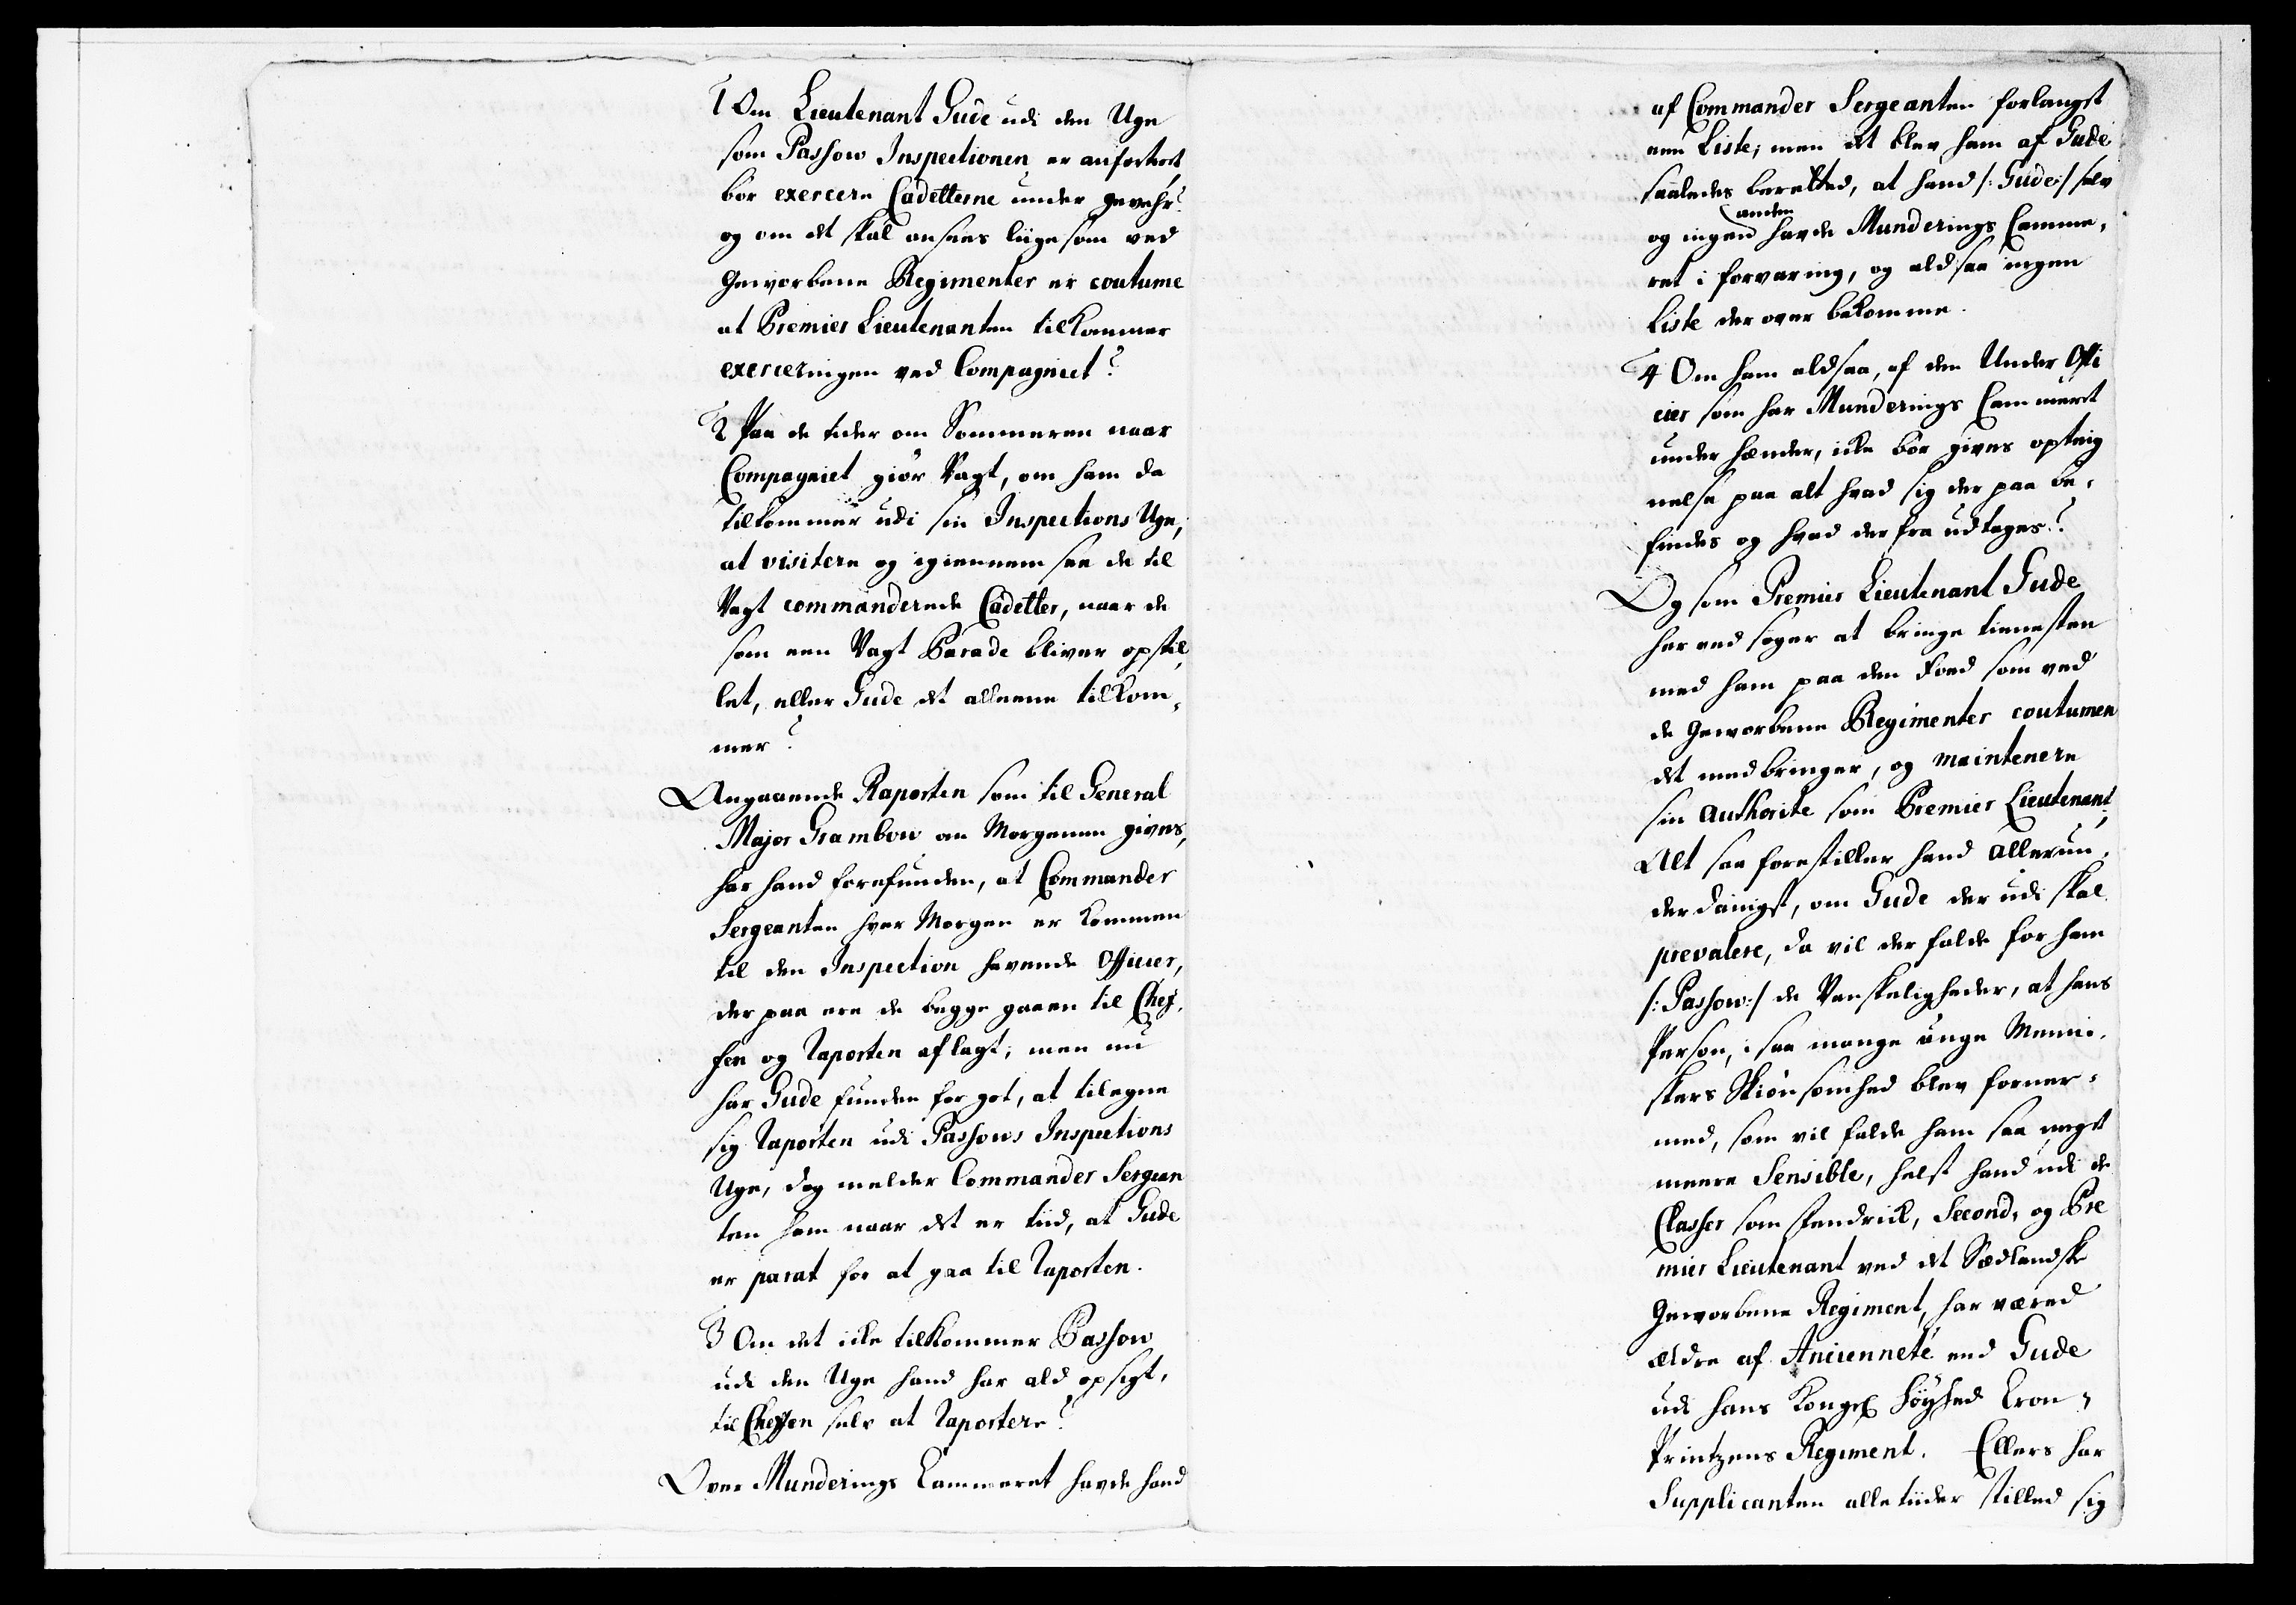 1 Om Lieutenant Gude udi den Uge
som Passow Inspectionen er anfortroet
bör exercere Cadetterne under gevehr?
og om det skal ansees liigesom ved
Geworbene Regimenter er coutume
at Premier Lieutenanten tilkommer
exerceringen ved Compagniet?
2 Paa de tider om Sommeren naar
Compagniet giör Vagt, om ham da
tilkommer udi sin Inspections Uge,
at visitere og igiennem see de til
Vagt commanderede Cadetter, naar de
som een Vagt Parade bliver opstil,
let, eller Gude det alleene tilkom,
mer?
Angaaende Raporten som til General
Major Grambow om Morgenen gives,
har hand forefunden, at Commander
Sergeanten hver Morgen er kommen
til den Inspection havende Officier,
der paa ere de begge gaaen til Chef,
fen og Raporten aflagt; men nu
har Gude funden for got, at tilegne
sig Raporten udi Passows Inspections
Uge, dog melder Commander Sergean
ten ham naar det er tiid, at Gude
er parat for at gaa til Raporten.
3 Om det icke tilkommer Passow
udi den Uge hand har ald opsigt,
til Cheffen selv at Raportere?
Over Munderings Cammeret havde hand
af Commander Sergeanten forlangt
een Liste; men det blev ham af Gude
saaledes beretted, at hand /: Gude :/ selv
anden
og ingen havde Munderings Camme,
ret i forvaring, og aldsaa ingen
Liste der over bekomme.
4 Om ham aldsaa, af den Under Offi
cier som har Munderings Cammeret
under hænder, icke bör gives opteig
nelse paa alt hvad sig der paa be,
findes og hvad der fra udtages?
Og som Premier Lieutenant Gude
her ved söger at bringe tienesten
med ham paa den Foed som ved
de Geworbene Regimenter coutumen
det medbringer, og maintenere
sin authorite som Premier Lieutenant;
Alt saa forestiller hand allerun,
derdanigst, om Gude der udi skal
prevalere, da vil der falde for ham
/: Passow :/ de Vanskeligheder, at hans
Person, i saa mange unge Menni,
skers Skiönsomhed blev forner,
med, som vil falde ham saa meget
meere Sensible, helst hand udi de
Classer som Fendrick, Second, og Pre
mier Lieutenant ved det Siælandske
Geworbene Regiment, har været
ældre af Ancienneté end Gude
udi hans Kongel Höyhed Cron,
Printzens Regiment. Ellers har
Supplicanten alle tiider stilled sig